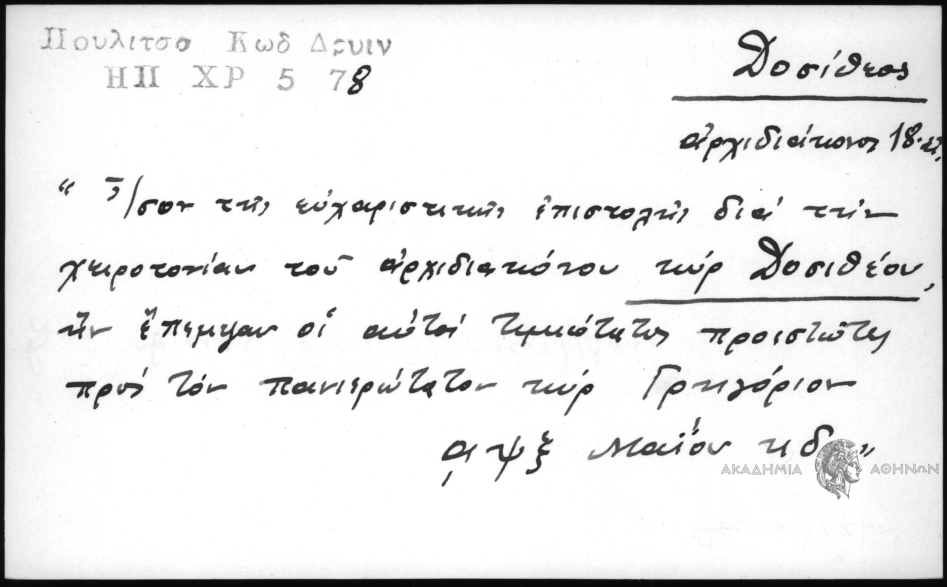 Πουλιτσα Κωδ Δρυιν
ΗΠ ΧΡ 5 78
Δοσίθεος
ἀρχιδιάκονος 18.
“ Ἴσον τῆς εὐχαριστικῆς ἐπιστολῆς διά τήν
χειροτονίαν τοῦ ἀρχιδιακόνου κύρ Δοσιθέου,
ἥν ἔπεμψαν οἱ αὐτοί τιμιώτατοι προεστῶτες
πρός τόν πανιερώτατον κύρ Γρηγόριον
͵αψξ Μαΐου κδ „
ΑΚΑΔΗΜΙΑ ΑΘΗΝΩΝ